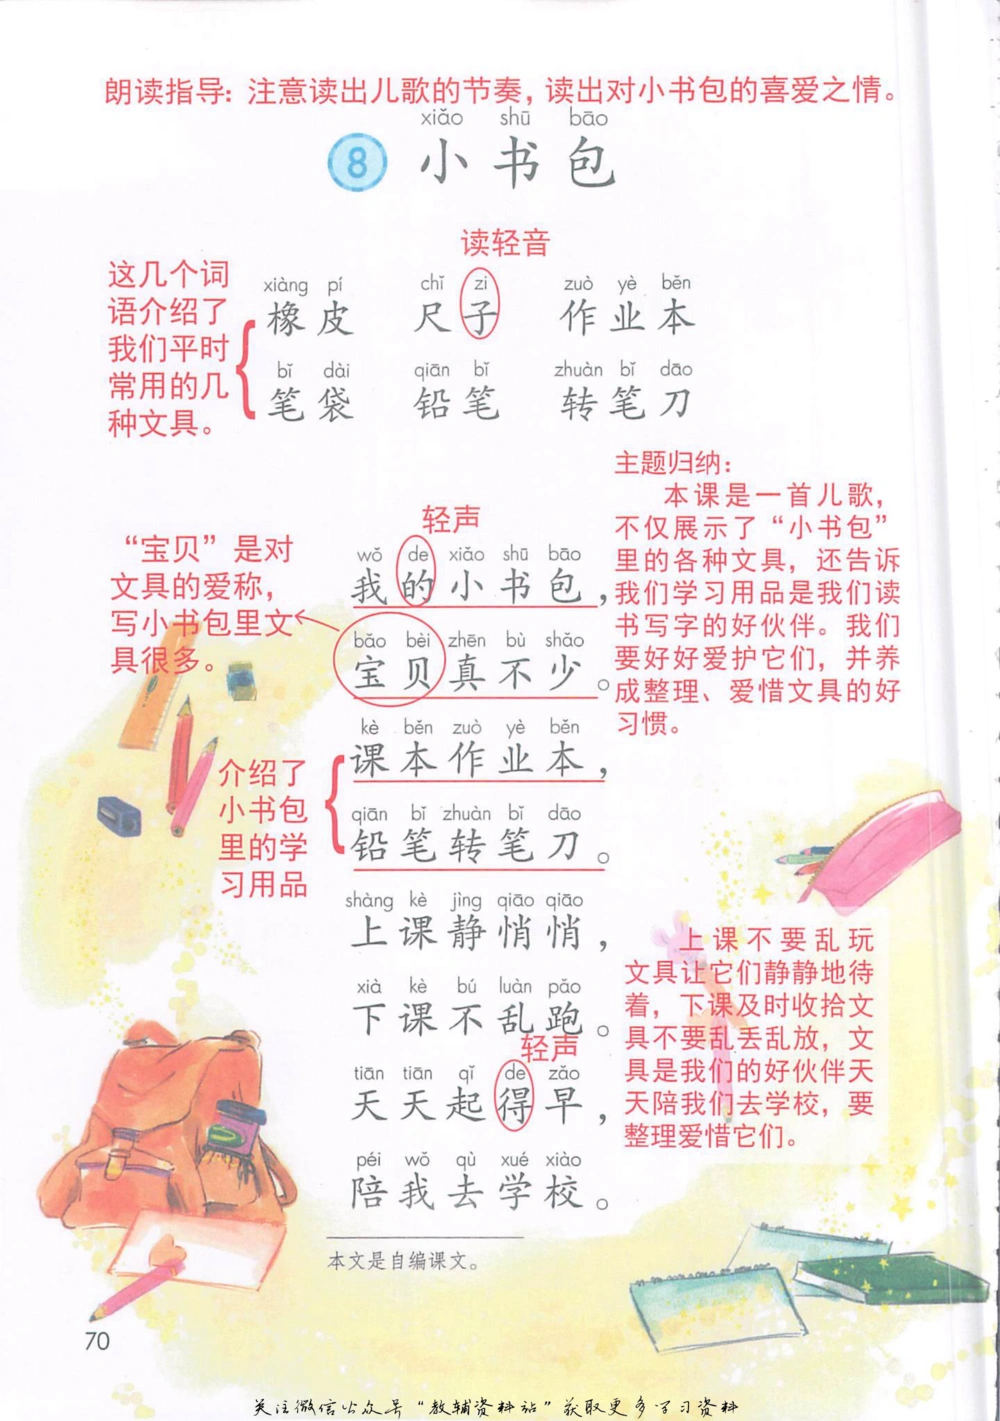 朗读指导：注意读出儿歌的节奏，读出对小书包的喜爱之情。
xiǎo shū bāo
8 小书包
读轻音
这几个词
语介绍了
我们平时
常用的几
种文具。
xiàng pí chǐ zi zuò yè běn
橡皮 尺子 作业本
bǐ dài qiān bǐ zhuàn bǐ dāo
笔袋 铅笔 转笔刀
主题归纳：
本课是一首儿歌，
不仅展示了“小书包”
里的各种文具，还告诉
我们学习用品是我们读
书写字的好伙伴。我们
要好好爱护它们，并养
成整理、爱惜文具的好
习惯。
轻声
“宝贝”是对
文具的爱称，
写小书包里文
具很多。
wǒ de xiǎo shū bāo
我的小书包，
bǎo bèi zhēn bù shǎo
宝贝真不少。
kè běn zuò yè běn
课本作业本，
qiān bǐ zhuàn bǐ dāo
铅笔转笔刀。
介绍了
小书包
里的学
习用品
shàng kè jìng qiāo qiāo
上课静悄悄，
xià kè bú luàn pǎo
下课不乱跑。
轻声
tiān tiān qǐ de zǎo
天天起得早，
péi wǒ qù xué xiào
陪我去学校。
上课不要乱玩
文具让它们静静地待
着，下课及时收拾文
具不要乱丢乱放，文
具是我们的好伙伴天
天陪我们去学校，要
整理爱惜它们。
本文是自编课文。
70
关注微信公众号“教辅资料站”获取更多学习资料